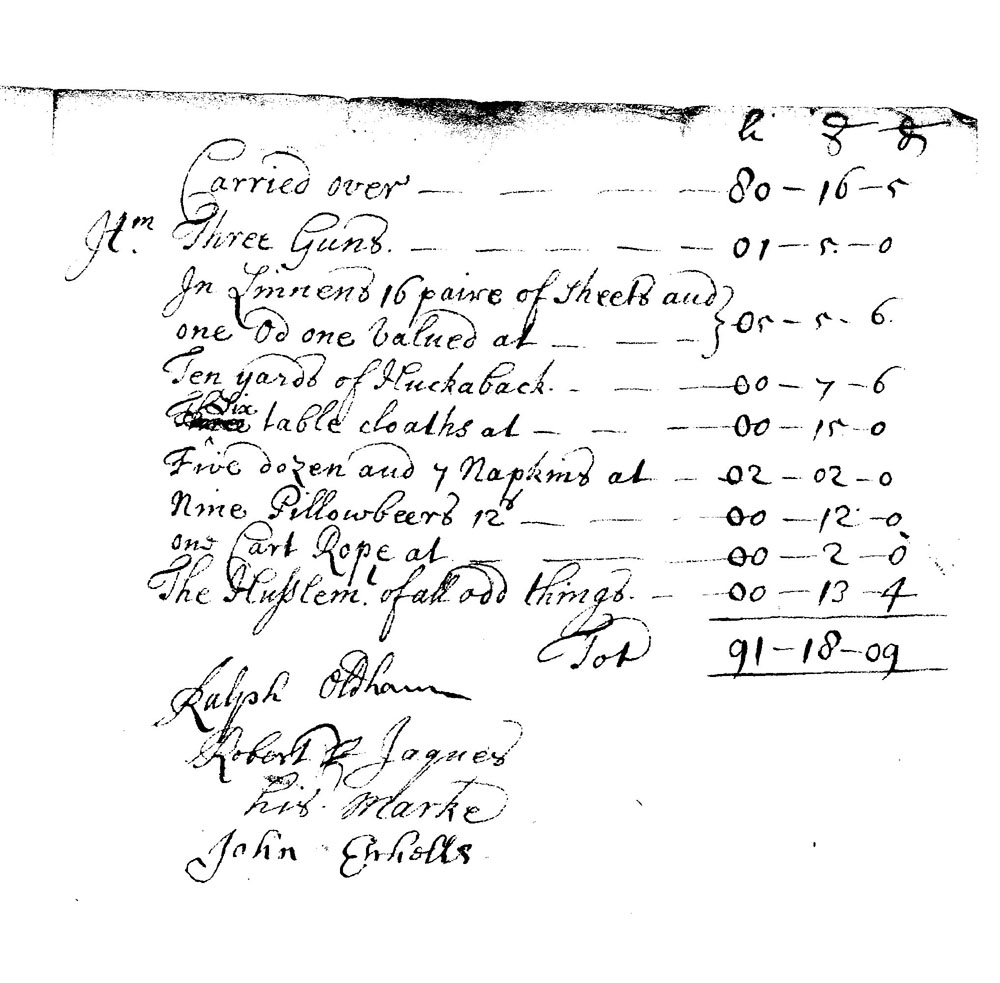 li s d
Carried over — — — — 80 – 16 – 5
Itm. Three Guns. — — — — 01 – 5. – 0
In Linnens 16 paire of sheets and
one Od one Valued at — — – } 05 – 5 - 6.
Ten yards of Huckaback. - — — 00 – 7 – 6
Six
Three table cloaths at — — — 00 – 15 – 0
^
Five dozen and 7 Napkins at — – 02 – 02 – 0
Nine Pillowbeers 12s — — – 00 – 12 – 0
one Cart Rope at — — — 00 – 2 – 0
The Husslemt. of all odd things. — — 00 – 13 – 4
Tot 91 – 18 – 09
Ralph Oldham
Robert R Jaques
his Marke
John